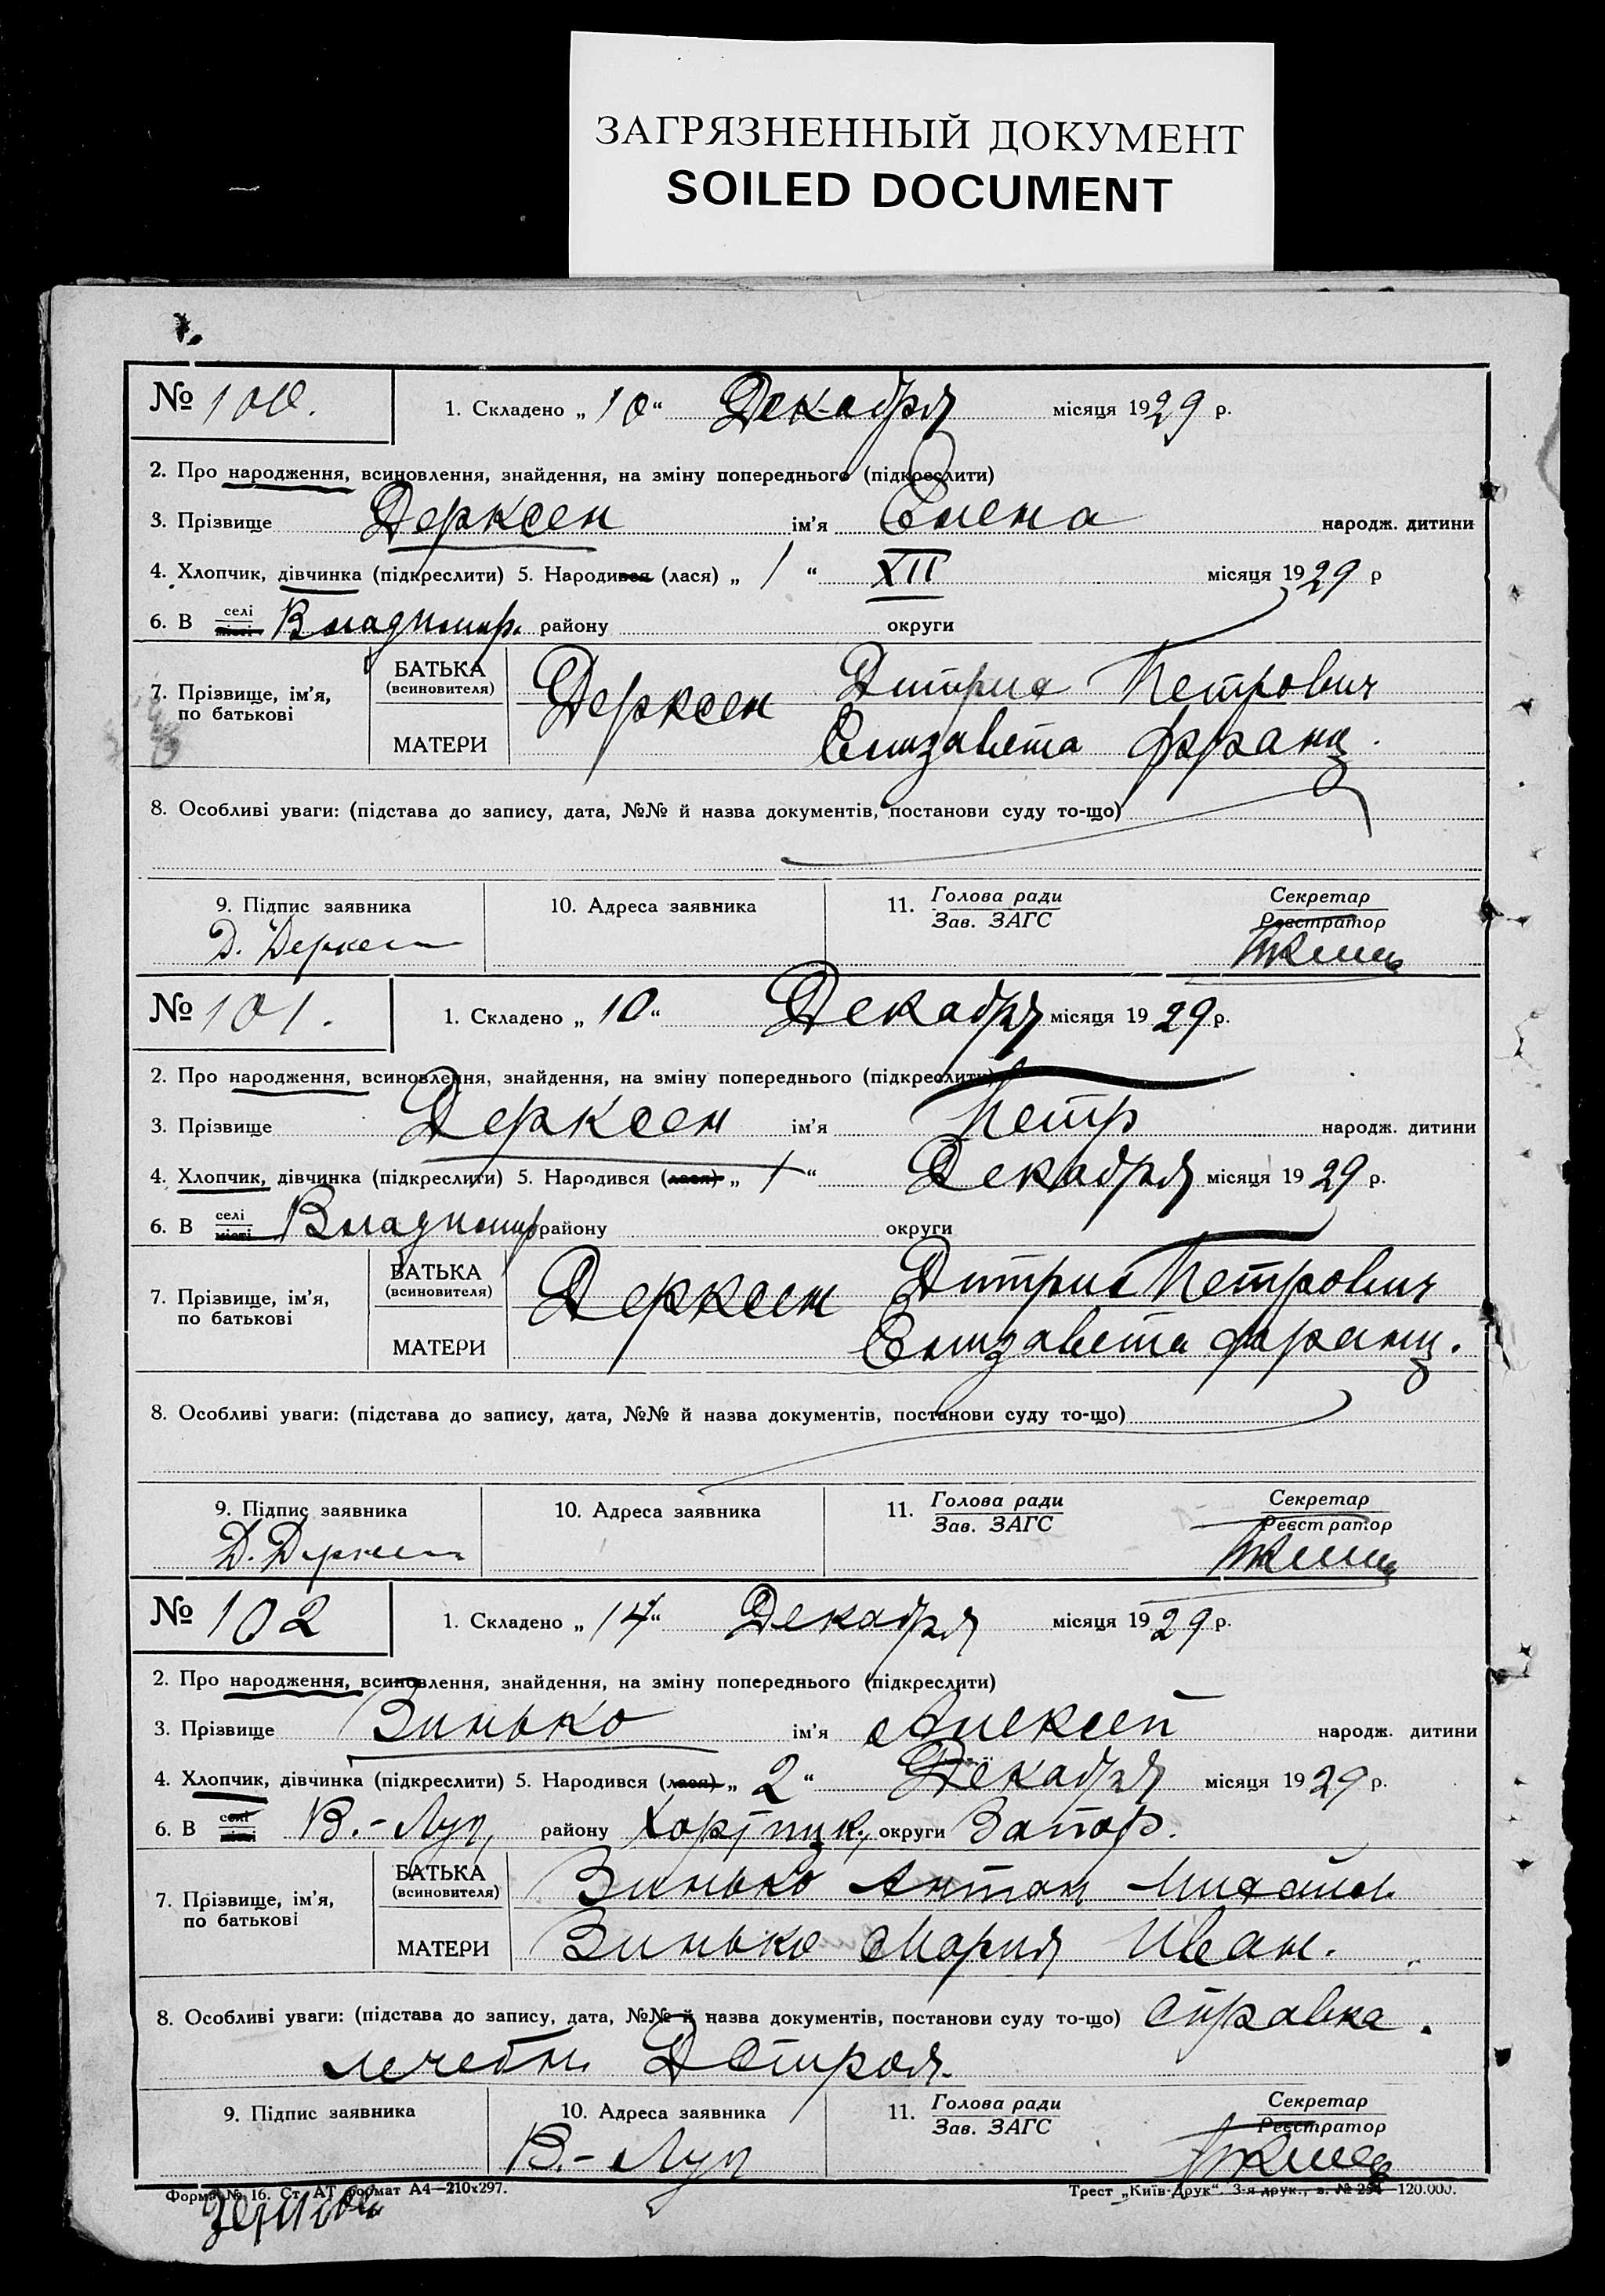 ЗАГРЯЗНЕННЫЙ ДОКУМЕНТ
SOILED DOCUMENT
№ 100.
1. Складено „ 10 “ Декабря місяця 1929 р.
2. Про народження, всиновлення, знайдення, на зміну попереднього (підкреслити)
3. Прізвище Дерксен ім'я Елена народж. дитини
4. Хлопчик, дівчинка (підкреслити) 5. Народився (лася) „ 1 “ XII місяця 1929 р
6. В селі місті Владимир. району округи
7. Прізвище, ім'я, по батькові
БАТЬКА (всиновителя) Дерксен Дитрих Петрович
МАТЕРИ Елизавета Франц.
8. Особливі уваги: (підстава до запису, дата, №№ й назва документів, постанови суду то-що)
9. Підпис заявника 10. Адреса заявника 11. Голова ради Зав. ЗАГС Секретар Реєстратор
Д. Дерксен
№ 101.
1. Складено „ 10 “ Декабря місяця 1929 р.
2. Про народження, всиновлення, знайдення, на зміну попереднього (підкреслити)
3. Прізвище Дерксен ім'я Петр народж. дитини
4. Хлопчик, дівчинка (підкреслити) 5. Народився (лася) „ 1 “ Декабря місяця 1929 р.
6. В селі місті Владимир району округи
7. Прізвище, ім'я, по батькові
БАТЬКА (всиновителя) Дерксен Дитрих Петрович
МАТЕРИ Елизавета Франц.
8. Особливі уваги: (підстава до запису, дата, №№ й назва документів, постанови суду то-що)
9. Підпис заявника 10. Адреса заявника 11. Голова ради Зав. ЗАГС Секретар Реєстратор
Д. Дерксен
№ 102
1. Складено „ 14 “ Декабря місяця 1929 р.
2. Про народження, всиновлення, знайдення, на зміну попереднього (підкреслити)
3. Прізвище Зинько ім'я Алексей народж. дитини
4. Хлопчик, дівчинка (підкреслити) 5. Народився (лася) „ 2 “ Декабря місяця 1929 р.
6. В селі місті В.-Луг, району Хортицк, округи Запор.
7. Прізвище, ім'я, по батькові
БАТЬКА (всиновителя) Зинько Антон Михайл.
МАТЕРИ Зинько Мария Иван.
8. Особливі уваги: (підстава до запису, дата, №№ й назва документів, постанови суду то-що) Справка
лечебн.
9. Підпис заявника 10. Адреса заявника 11. Голова ради Зав. ЗАГС Секретар Реєстратор
В.-Луг
Форма № 16. Ст. АТ формат А4—210x297. Трест „Київ-Друк“. 3-я друк., з. № 254—120.000.